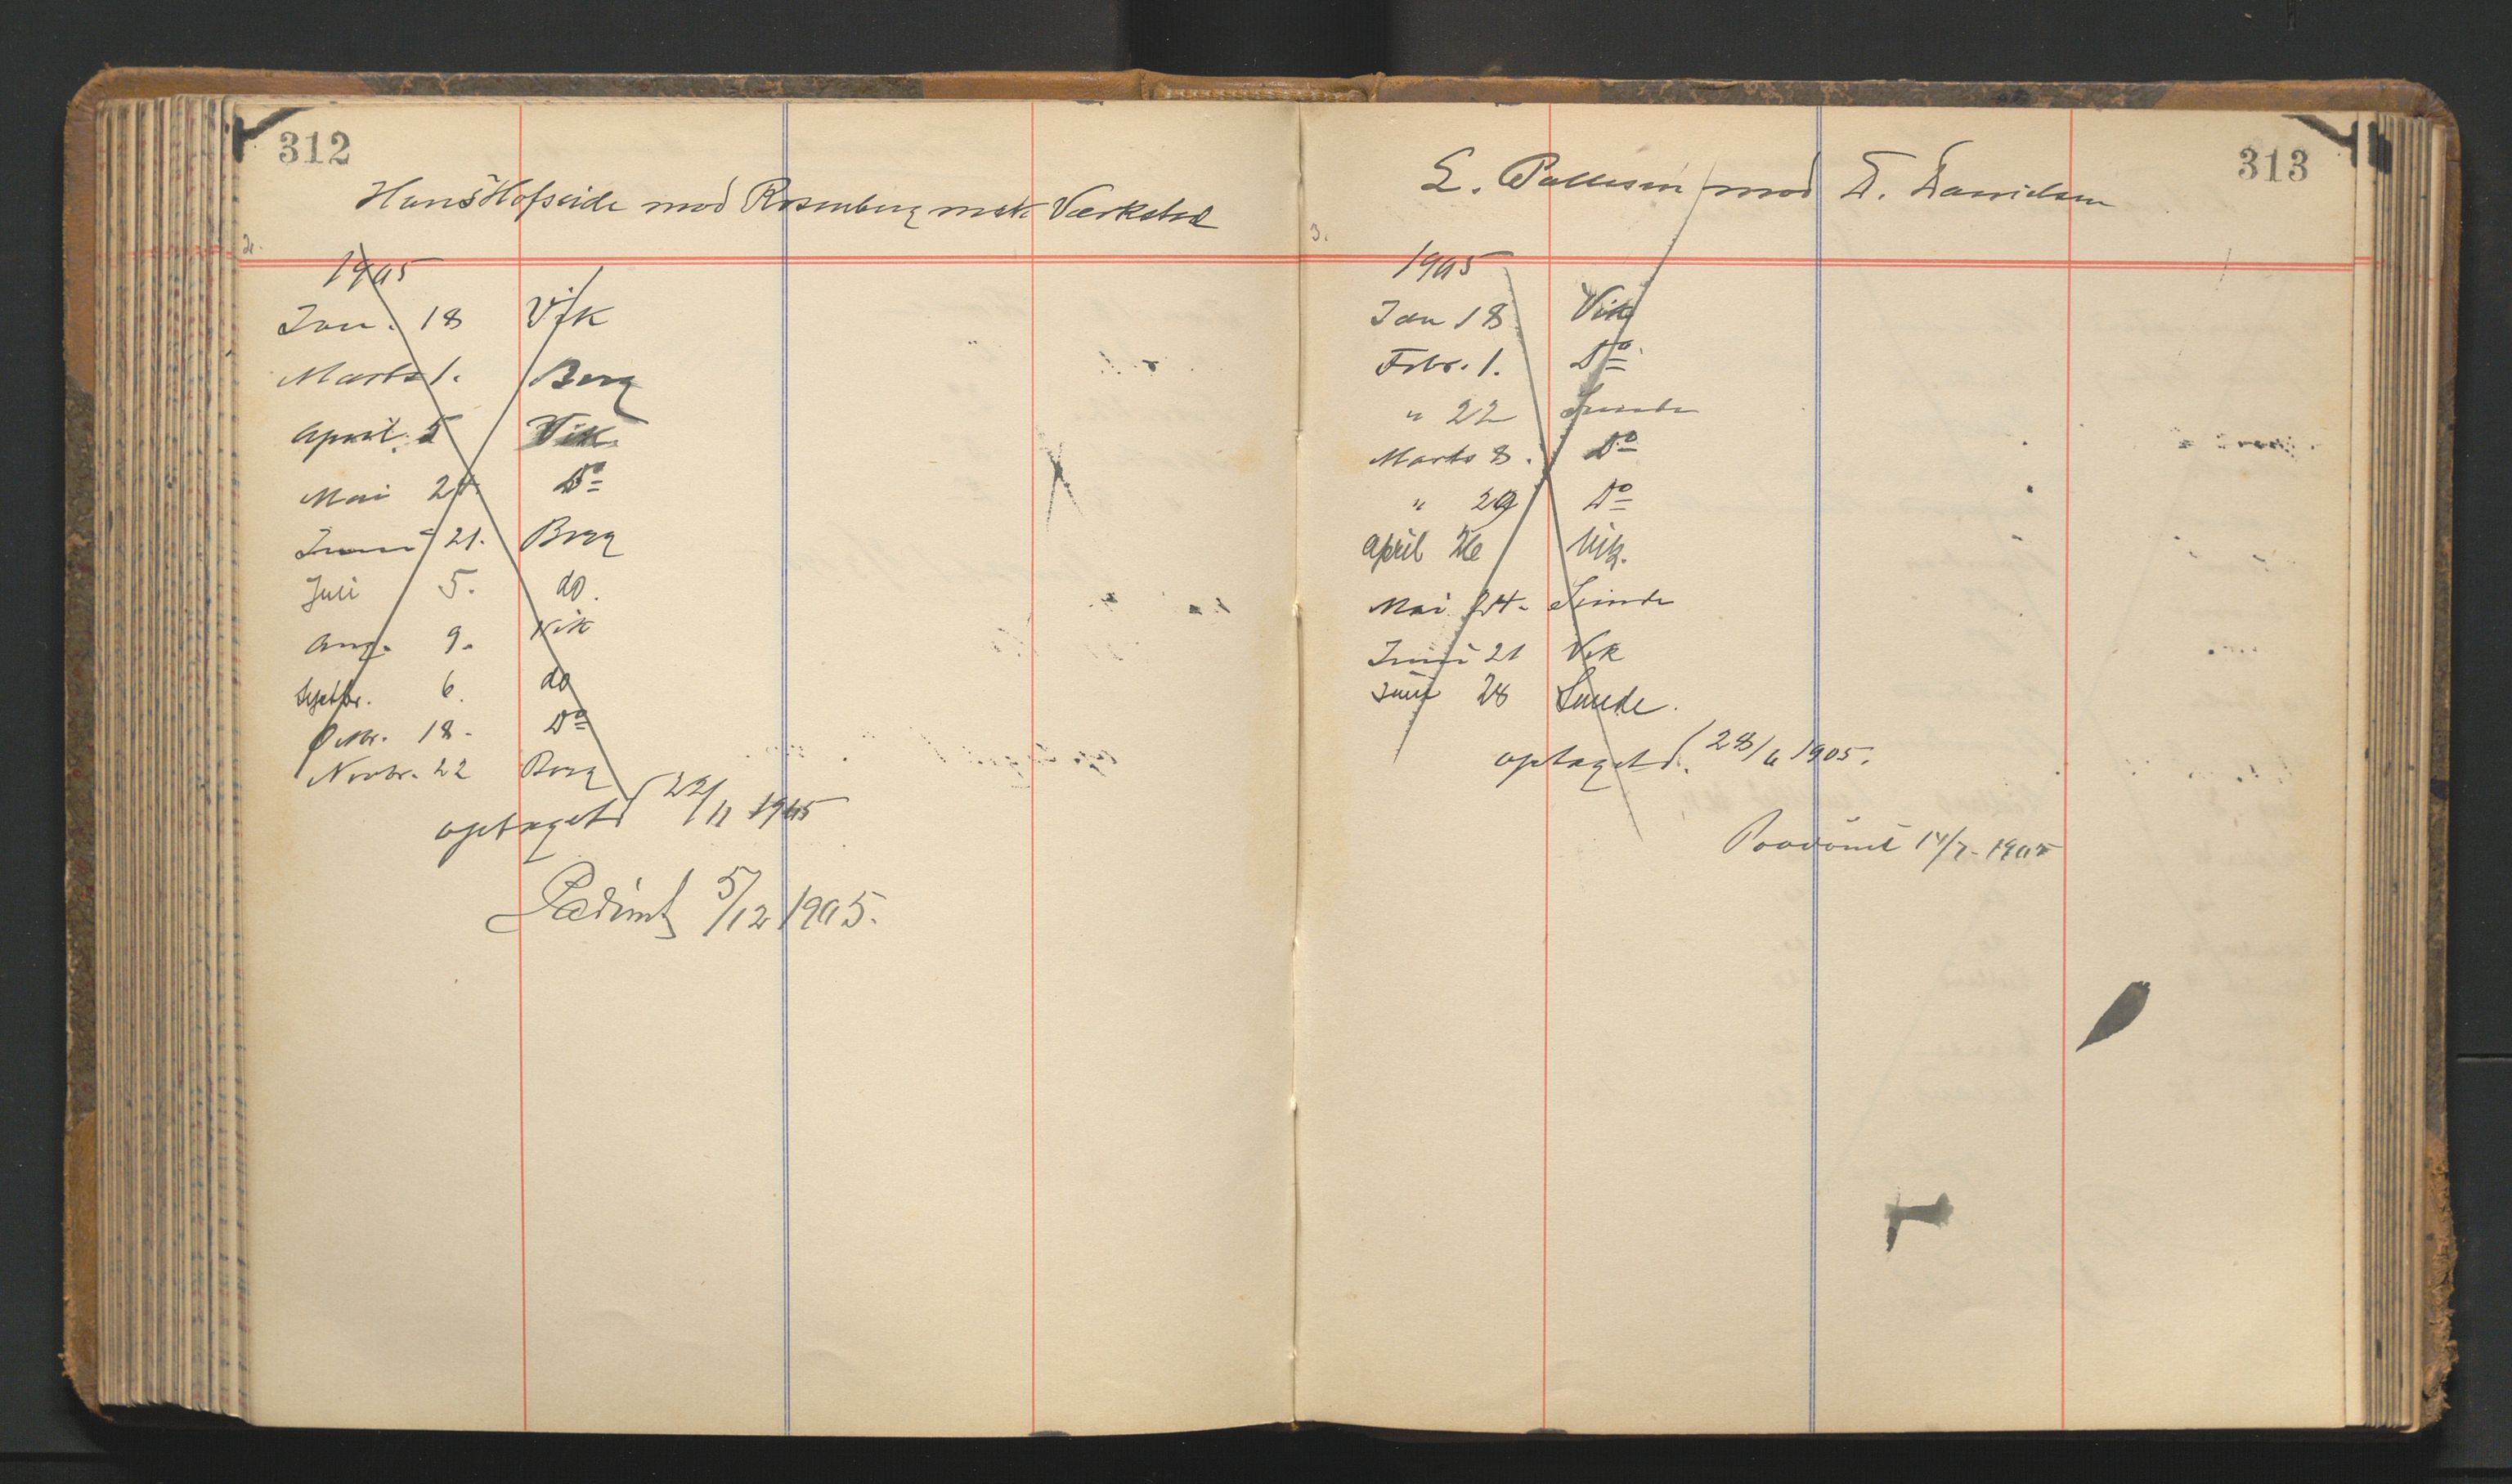 312
Hans Hofseide mod Rosenberg mek Værksted
2.
1905
Jan. 18 Vik
Marts 1. Berg
April. 5 Vik.
Mai 24. Do
Juni 21. Berg
Juli 5. do.
Aug. 9. Vik
Septbr. 6. do
Octbr. 18. Do
Novbr. 22 Berg
optaget 22/11 1905
Pådømt 5/12 1905.
313
E. Pallesen mod D. Danielsen
3.
1905
Jan 18 Vik
Febr. 1. Do
" 22 Sunde
Marts 8. Do
" 29 Do
April 26 Vik.
Mai 24. Sunde
Juni 21 Vik
Juni 28 Sunde.
optaget d. 28/6 1905.
Paadømt 14/7 - 1905